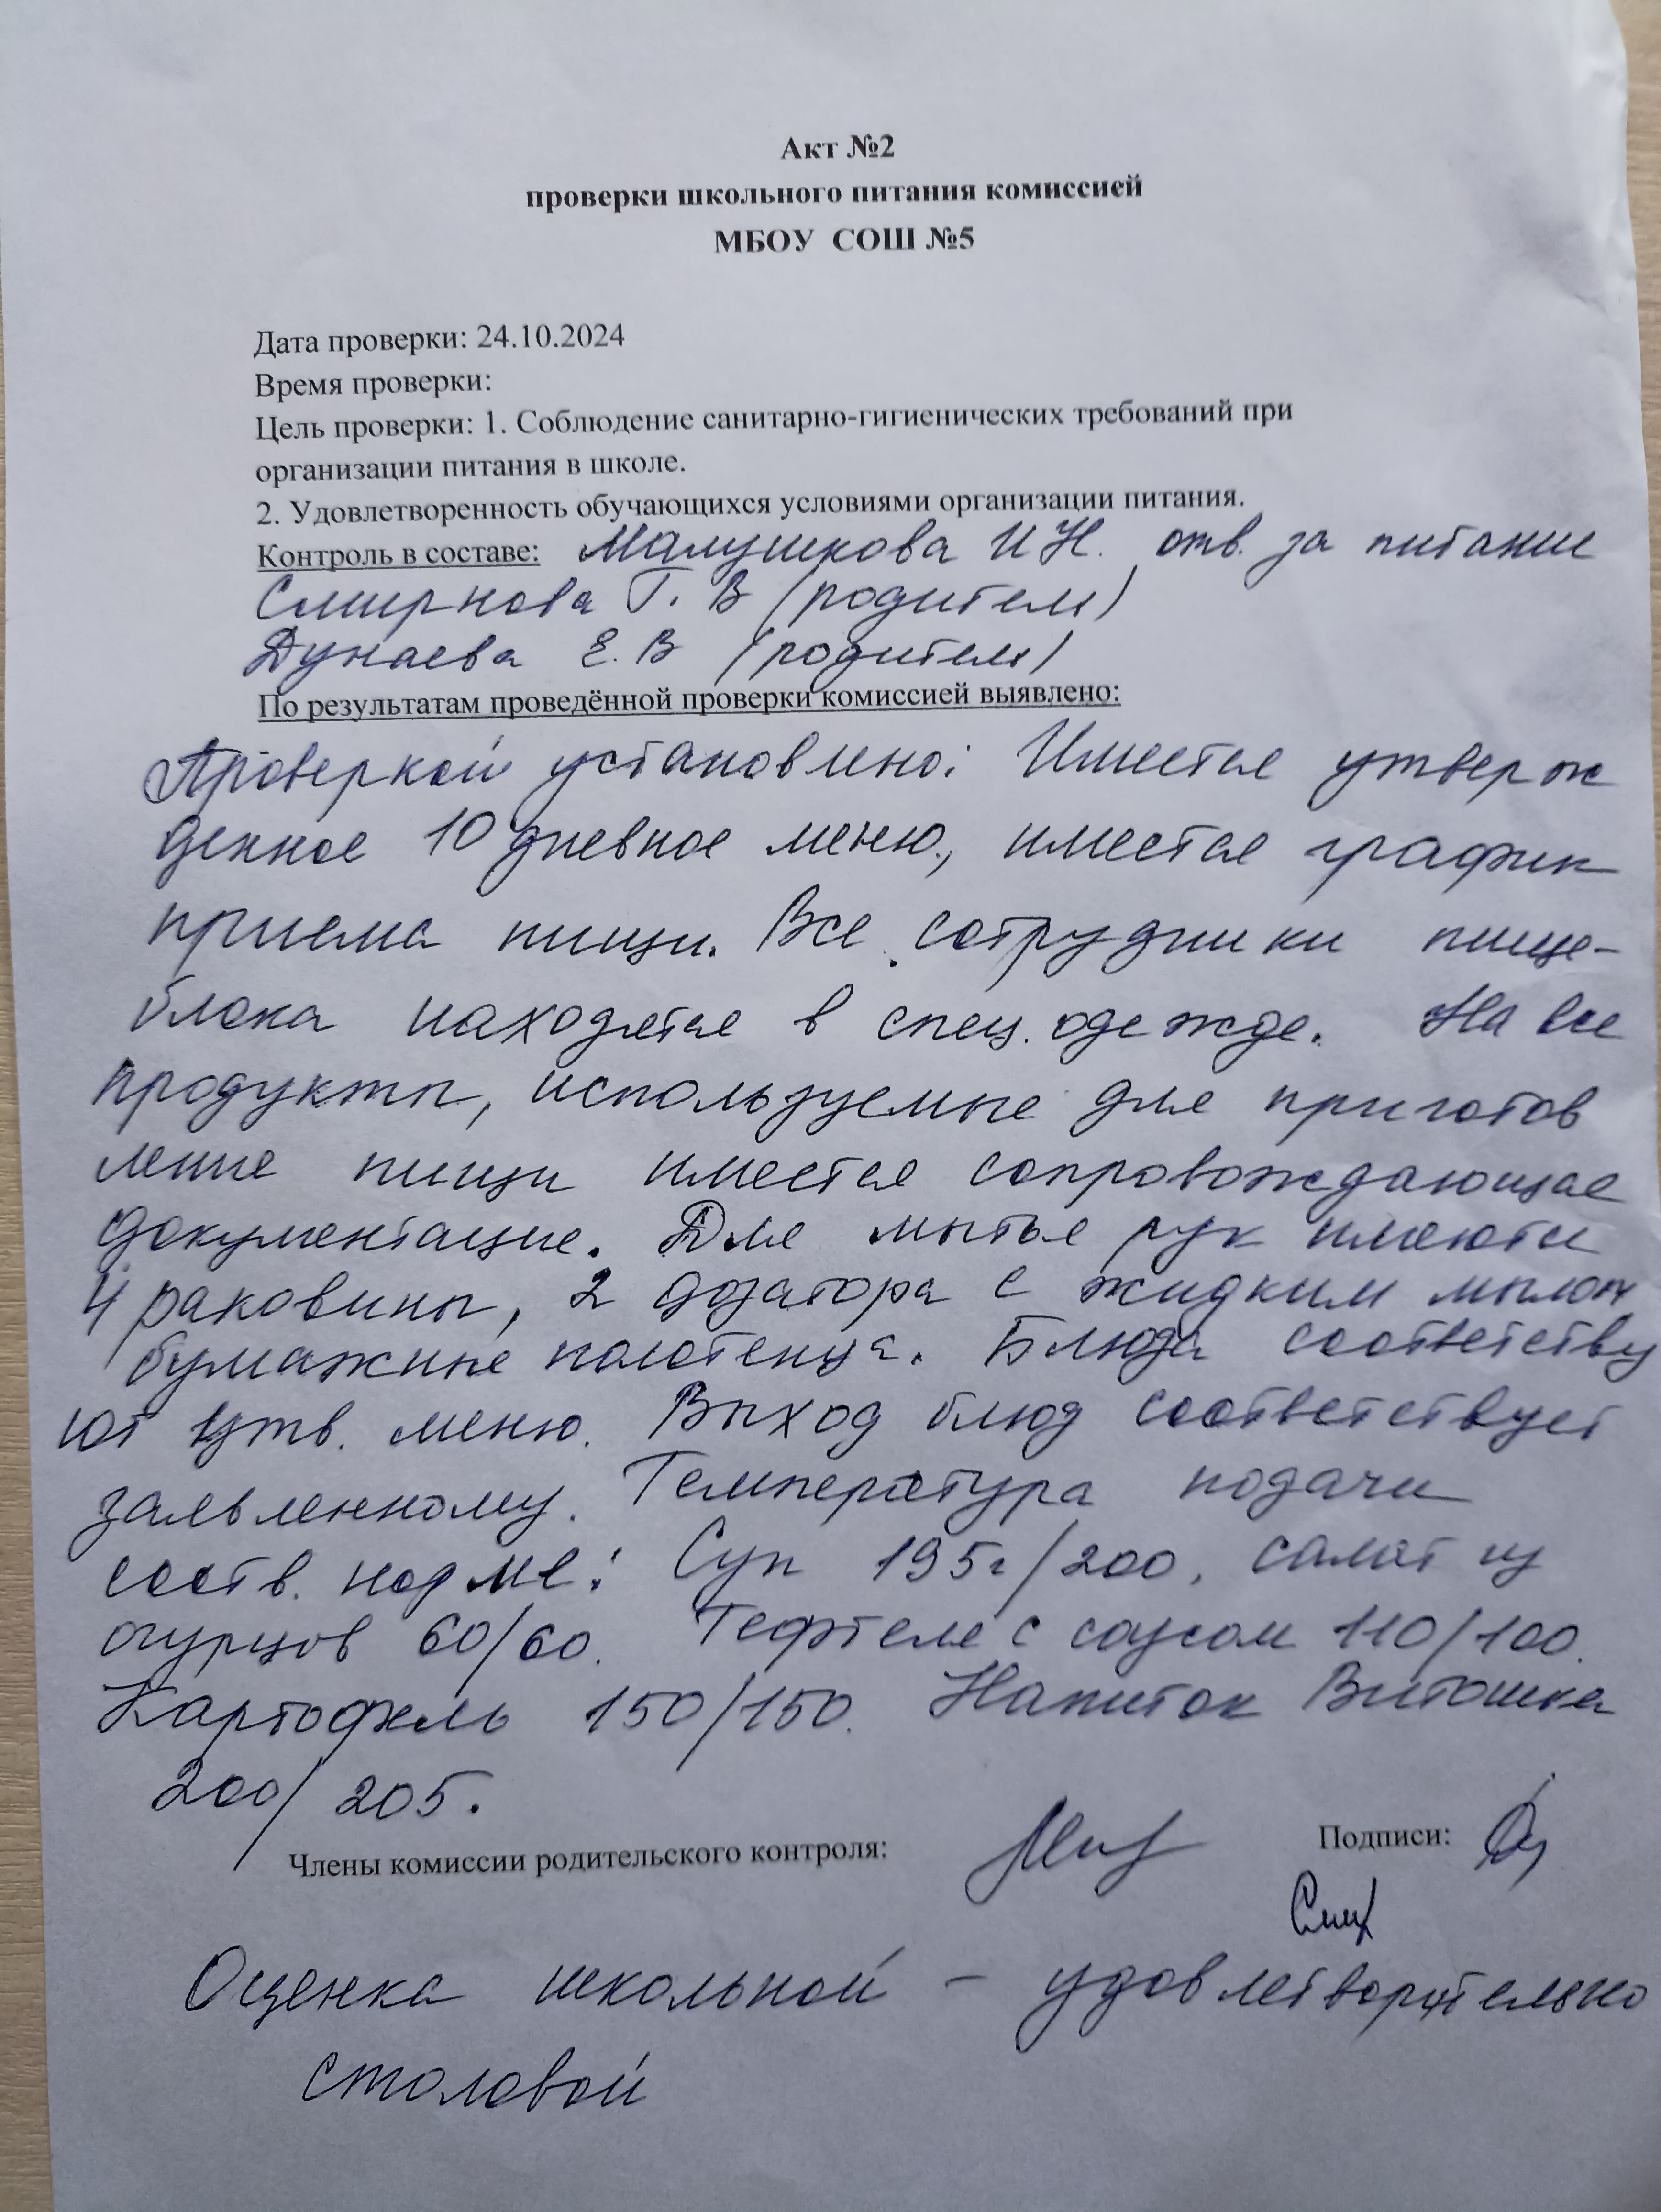 Акт №2
проверки школьного питания комиссией
МБОУ СОШ №5
Дата проверки: 24.10.2024
Время проверки:
Цель проверки: 1. Соблюдение санитарно-гигиенических требований при
организации питания в школе.
2. Удовлетворенность обучающихся условиями организации питания.
Контроль в составе: Малушкова И Н. отв. за питание
Смирнова Г. В (родитель)
Дунаева Е. В (родитель)
По результатам проведённой проверки комиссией выявлено:
Проверкой установлено: Имеется утверж
денное 10 дневное меню, имеется график
приема пищи. Все сотрудники пище-
блока находятся в спец. одежде. На все
продукты, используемые для приготов
ление пищи имеется сопровождающая
документация. Для мытья рук имеются
4 раковины, 2 дозатора с жидким мылом
бумажные полотенца. Блюда соответству
ют утв. меню. Выход блюд соответствует
заявленному. Температура подачи
соотв. норме: Суп 195г/200, салат из
огурцов 60/60. Тефтели с соусом 110/100.
Картофель 150/150. Напиток Витошка
200/205.
Члены комиссии родительского контроля: Подписи:
Оценка школьной – удовлетворительно
столовой